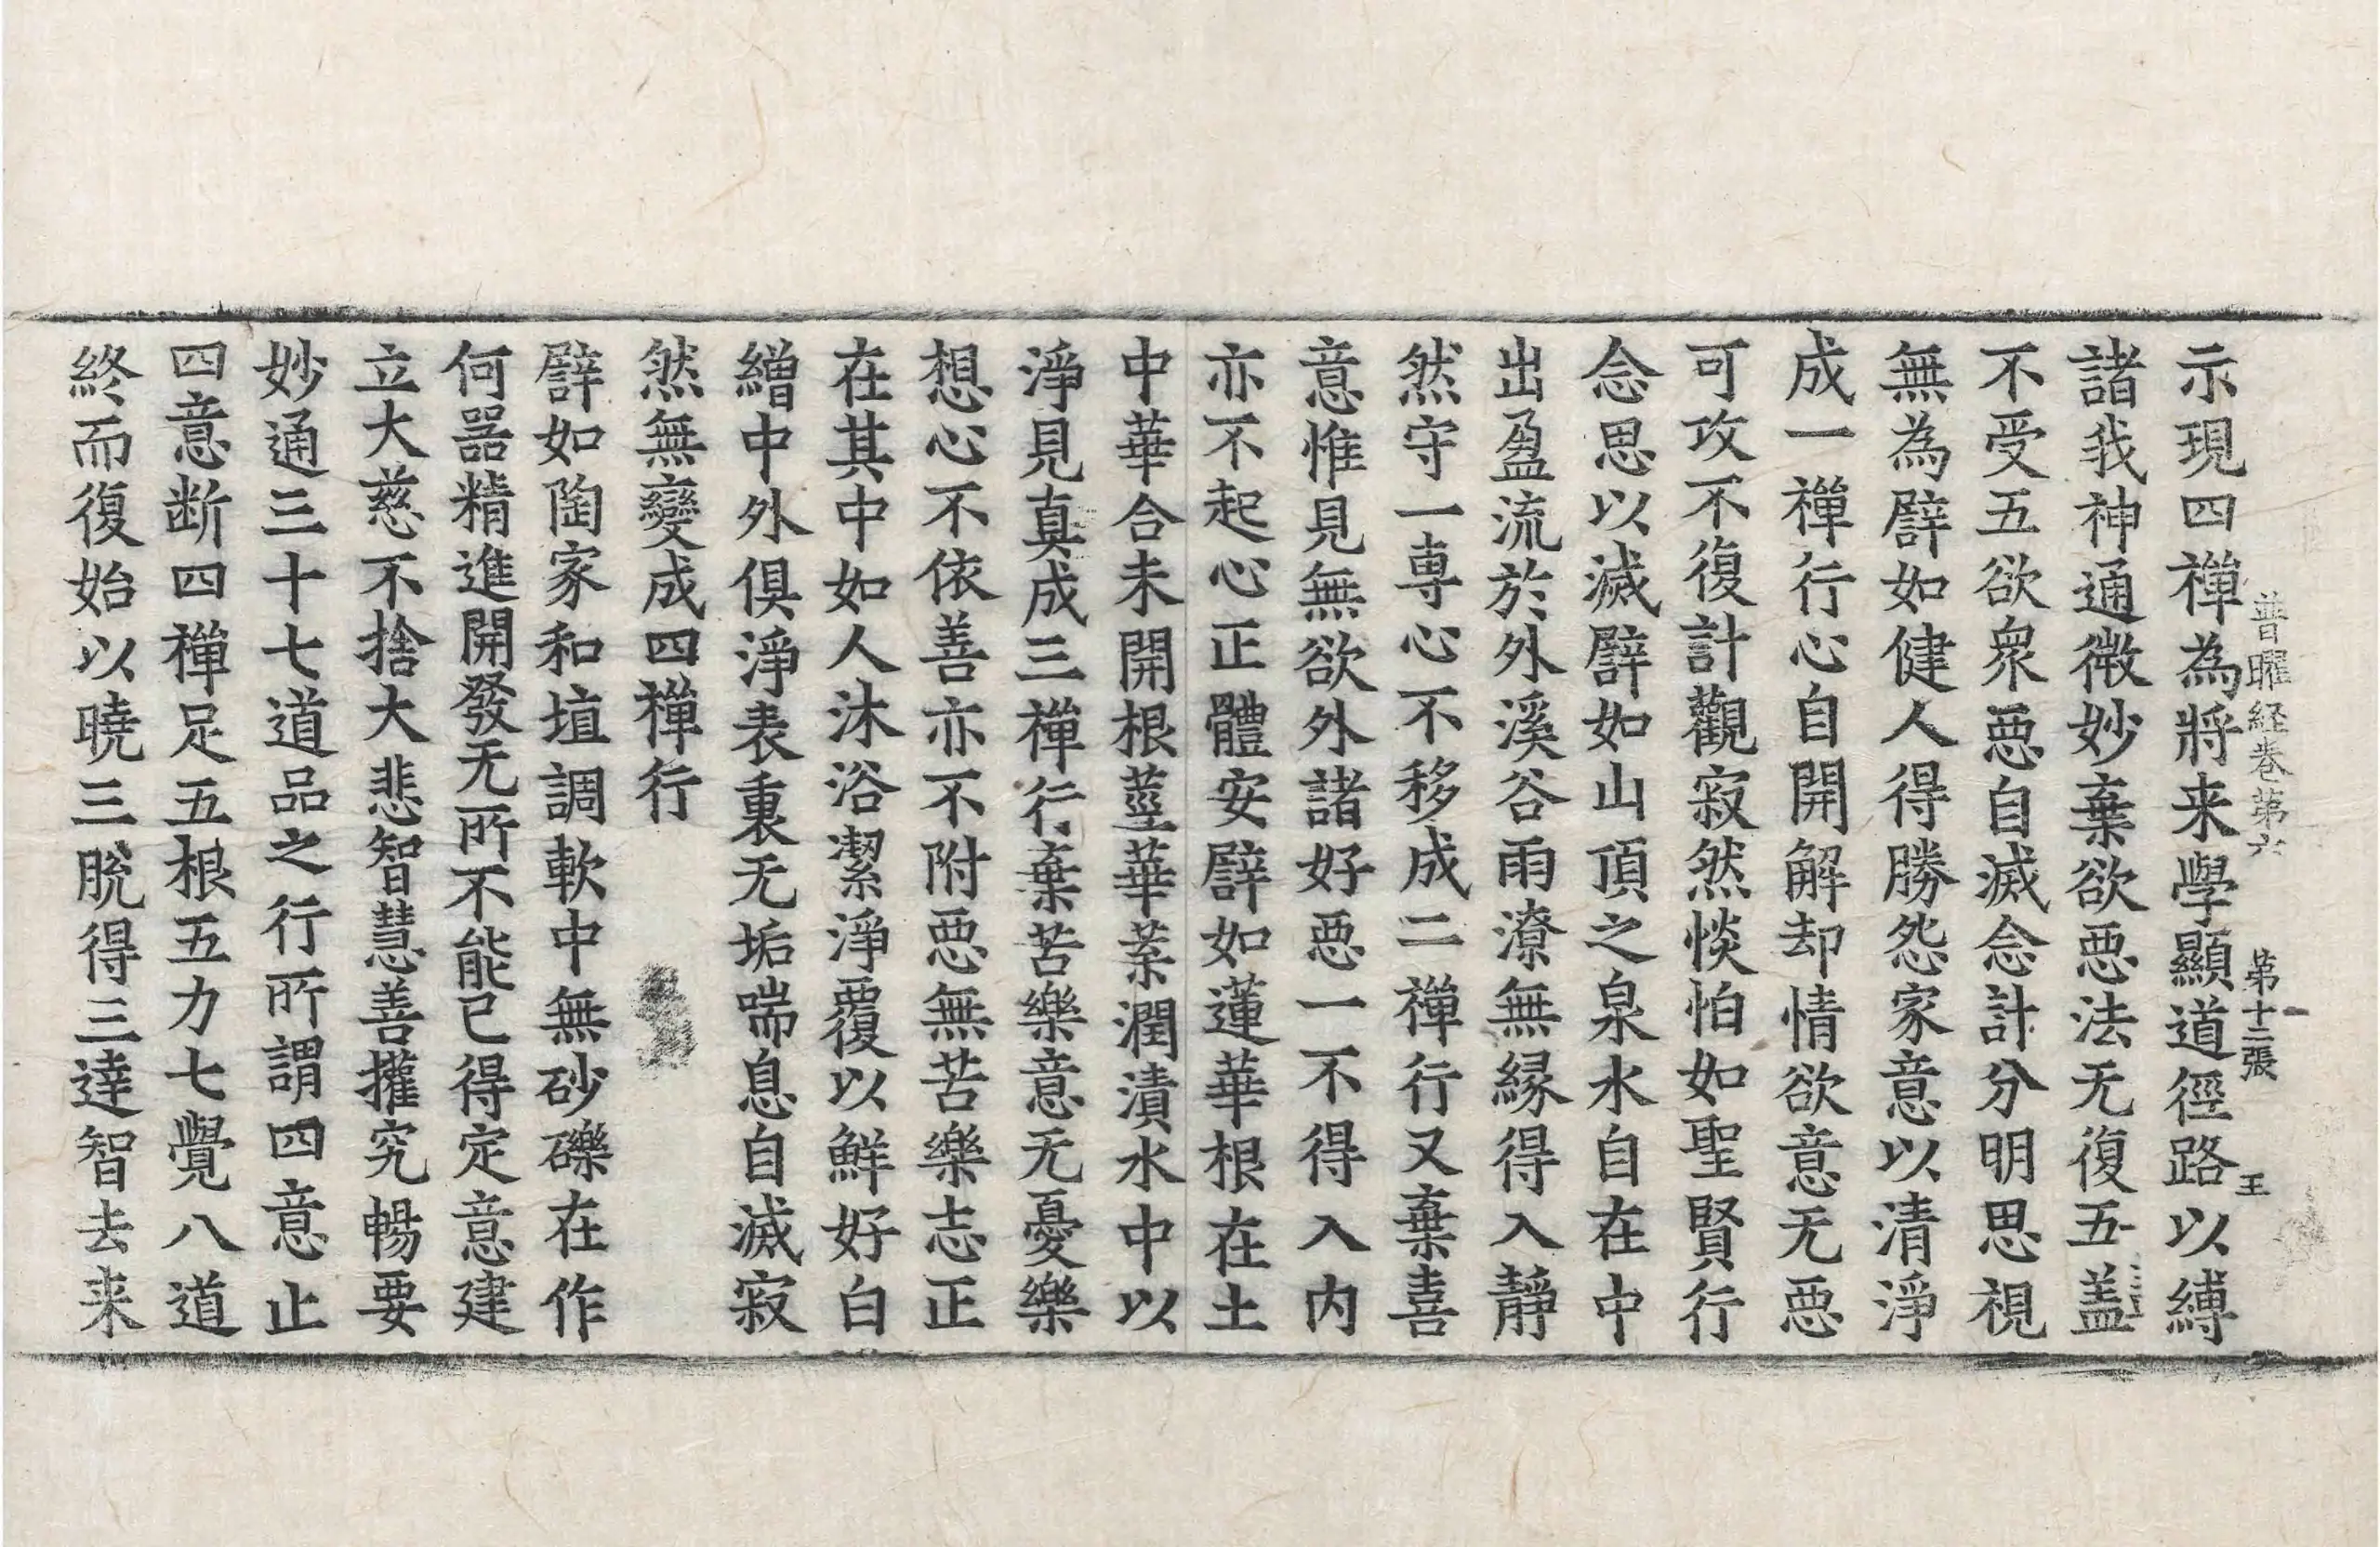 普曜経巻第六 第十二張 王
示現四禪為將来學顯道徑路以縛
諸我神通微妙棄欲惡法无復五盖
不受五欲衆惡自滅念計分明思視
無為譬如健人得勝怨家意以清淨
成一禪行心自開解却情欲意无惡
可攻不復計觀寂然惔怕如聖賢行
念思以滅譬如山頂之泉水自在中
出盈流於外溪谷雨潦無緣得入靜
然守一專心不移成二禪行又棄喜
意惟見無欲外諸好惡一不得入内
亦不起心正體安譬如蓮華根在土
中華合未開根莖華葉潤漬水中以
淨見真成三禪行棄苦樂意无憂樂
想心不依善亦不附惡無苦樂志正
在其中如人沐浴潔淨覆以鮮好白
繒中外俱淨表裏无垢喘息自滅寂
然無變成四禪行
譬如陶家和埴調軟中無砂礫在作
何器精進開發无所不能已得定意建
立大慈不捨大悲智慧善權究暢要
妙通三十七道品之行所謂四意止
四意断四禪足五根五力七覺八道
終而復始以曉三脫得三達智去来